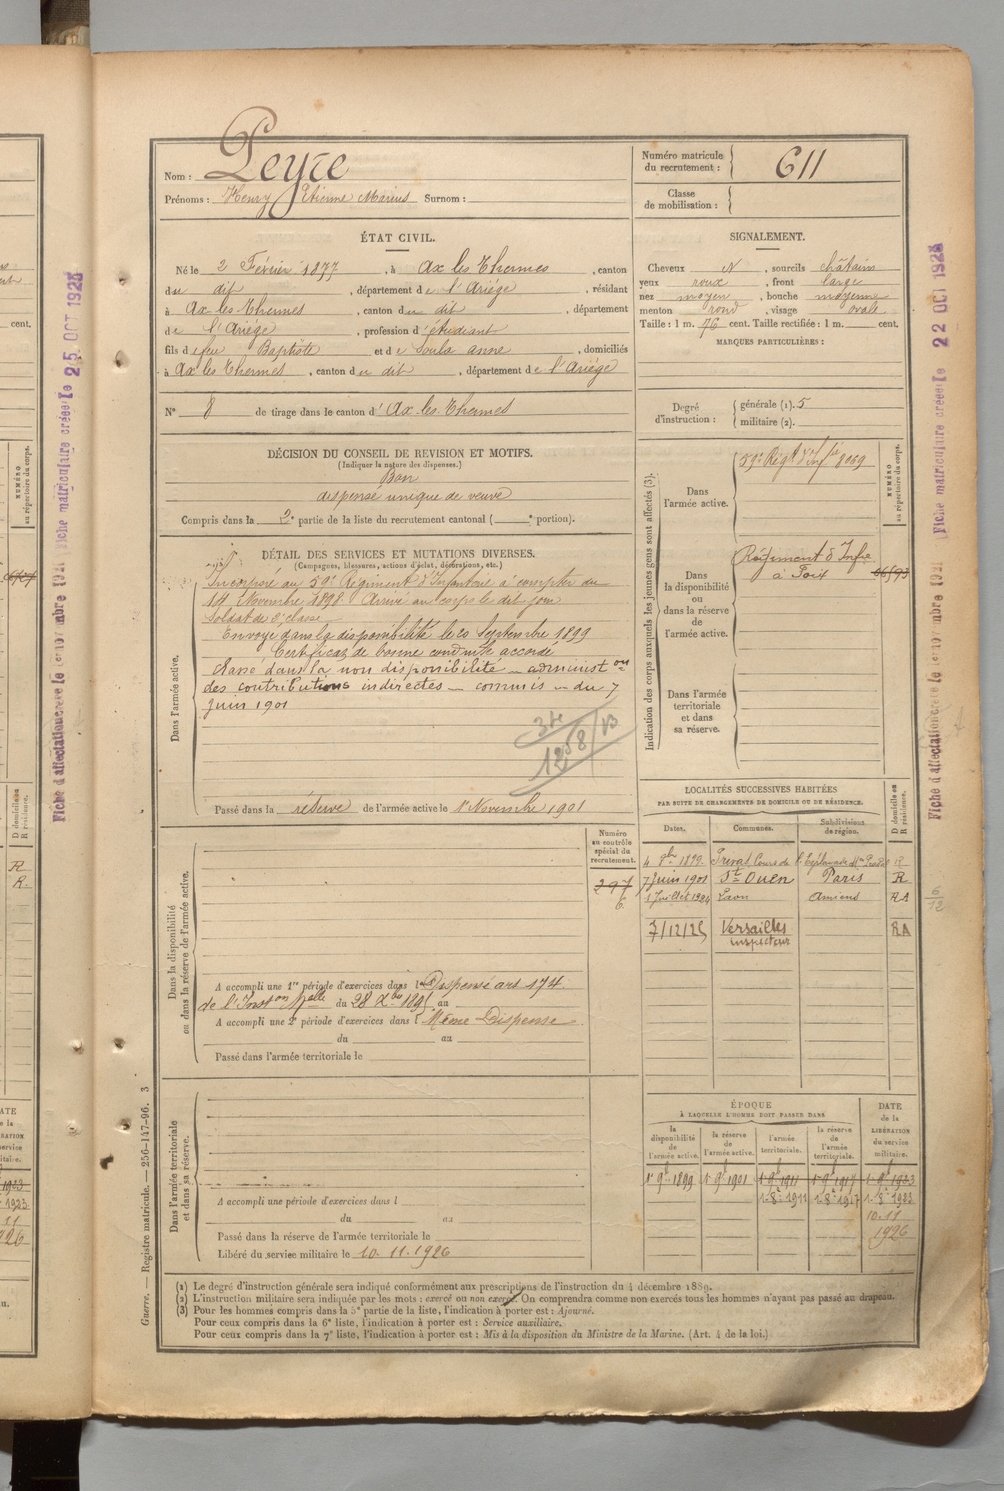 Nom : Peyre
Prénoms : Henry Etienne Marius Surnom :
Numéro matricule du recrutement : 611
Classe de mobilisation :
ÉTAT CIVIL.
Né le 2 Février 1877, à Ax les Thermes, canton
du dit, département de l'Ariége, résidant
à Ax les Thermes, canton du dit, département
de l'Ariége, profession d'étudiant
fils de feu Baptiste et de Soula anne, domiciliés
à Ax les Thermes, canton du dit, département de l'Ariége
N° 8 de tirage dans le canton d'Ax-les-Thermes
SIGNALEMENT.
Cheveux N, sourcils châtain
yeux roux, front large
nez moyen, bouche moyenne
menton rond, visage ovale
Taille : 1 m. 76 cent. Taille rectifiée : 1 m. cent.
MARQUES PARTICULIÈRES :
Degré d'instruction : générale (1). 5
militaire (2).
DÉCISION DU CONSEIL DE REVISION ET MOTIFS.
(Indiquer la nature des dispenses.)
Bon
dispensé unique de veuve
Compris dans la 2e partie de la liste du recrutement cantonal ( e portion).
DÉTAIL DES SERVICES ET MUTATIONS DIVERSES.
(Campagnes, blessures, actions d'éclat, décorations, etc.)
Dans l'armée active.
Incorporé au 59e Régiment d'Infanterie à compter du
14 Novembre 1898 Arrivé au corps le dit jour
Soldat de 2e classe
Envoyé dans la disponibilité le 20 Septembre 1899
Certificat de bonne conduite accordé
Passé dans la non disponibilité - administ on
des contributions indirectes - commis - du 7
juin 1901
Passé dans la réserve de l'armée active le 1 Novembre 1901
Indication des corps auxquels les jeunes gens sont affectés (3).
NUMÉRO au répertoire du corps.
Dans l'armée active.
59e Régt d'Infie 8069
Dans la disponibilité ou dans la réserve de l'armée active.
Régiment d'Infie
à Foix
Dans l'armée territoriale et dans sa réserve.
LOCALITÉS SUCCESSIVES HABITÉES
PAR SUITE DE CHANGEMENTS DE DOMICILE OU DE RÉSIDENCE.
Dates. Communes. Subdivisions de région. D domicile ou R résidence.
7 Juin 1901 St Ouen Paris R
1 Juillet 1924 Laon Amiens RA
7/12/25 Versailles RA
inspecteur
Numéro au contrôle spécial du recrutement.
297
6
Dans la disponibilité ou dans la réserve de l'armée active.
A accompli une 1re période d'exercices dans l Dispensé art 174
de l'Inston Melle du 28 Xbre 1895 au
A accompli une 2e période d'exercices dans l Même Dispense
du au
Passé dans l'armée territoriale le
Dans l'armée territoriale et dans sa réserve.
A accompli une période d'exercices dans l
du au
Passé dans la réserve de l'armée territoriale le
Libéré du service militaire le 10.11.1926
ÉPOQUE
À LAQUELLE L'HOMME DOIT PASSER DANS
la disponibilité de l'armée active. la réserve de l'armée active. l'armée territoriale. la réserve de l'armée territoriale.
DATE de la LIBÉRATION du service militaire.
1 9e 1899 1 9e 1901 1 9e 1911 1 9e 1917 1 9e 1923
1 8e 1911 1 8e 1917 1 8e 1923
10.11
1926
(1) Le degré d'instruction générale sera indiqué conformément aux prescriptions de l'instruction du 4 décembre 1889.
(2) L'instruction militaire sera indiquée par les mots : exercé ou non exercé. On comprendra comme non exercés tous les hommes n'ayant pas passé au drapeau.
(3) Pour les hommes compris dans la 5e partie de la liste, l'indication à porter est : Ajourné.
Pour ceux compris dans la 6e liste, l'indication à porter est : Service auxiliaire.
Pour ceux compris dans la 7e liste, l'indication à porter est : Mis à la disposition du Ministre de la Marine. (Art. 4 de la loi.)
Guerre. — Registre matricule. — 256-147-96. 3
Fiche matriculaire créée le 22 OCT 1925
Fiche d'affectation créée le 1er novembre 192
Fiche matriculaire créée le 25 OCT 1925
Fiche d'affectation créée le 1er novembre 192